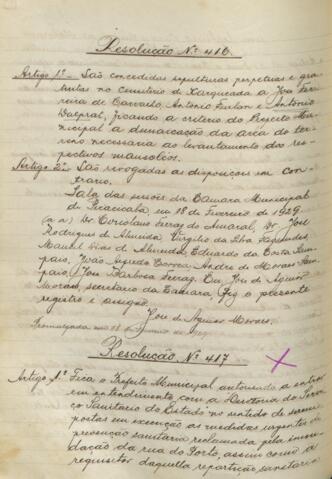 Resolução Nº 416
Artigo 1º - São concedidas sepulturas perpetuas e gra-
tuitas no cemiterio de Xarqueada a José Fer-
reira de Carvalho, Antonio Furlan e Antonio
Dalpral, ficando a criterio do Prefeito Mu-
nicipal a demarcação da area do ter-
reno necessaria ao levantamento dos res-
pectivos mausoléos.
Artigo 2º - São revogadas as disposições em con-
trario.
Sala das sessões da Camara Municipal
de Piracicaba, em 18 de Fevereiro de 1929.
(a a) Dr Coriolano Ferraz do Amaral, Dr José
Rodrigues de Almeida, Virgilio da Silva Fagundes,
Manoel Dias de Almeida, Eduardo da Costa Sam-
paio, João Alfredo Correa, André de Moraes Sam-
paio, José Barbosa Ferraz. Eu, José de Aguiar
Moraes, secretario da Camara, fiz o presente
registro e assigno.
José de Aguiar Moraes.
Promulgada em 18 de
Resolução Nº 417
Artigo 1º Fica o Prefeito Municipal autorisado a entrar
em entendimento com a Directoria do Servi-
ço Sanitario do Estado no sentido de serem
postas em execução as medidas urgentes de
prevenção sanitaria reclamada pela inun-
dação da rua do Porto, assim como a
requisitar daquella repartição sanitaria